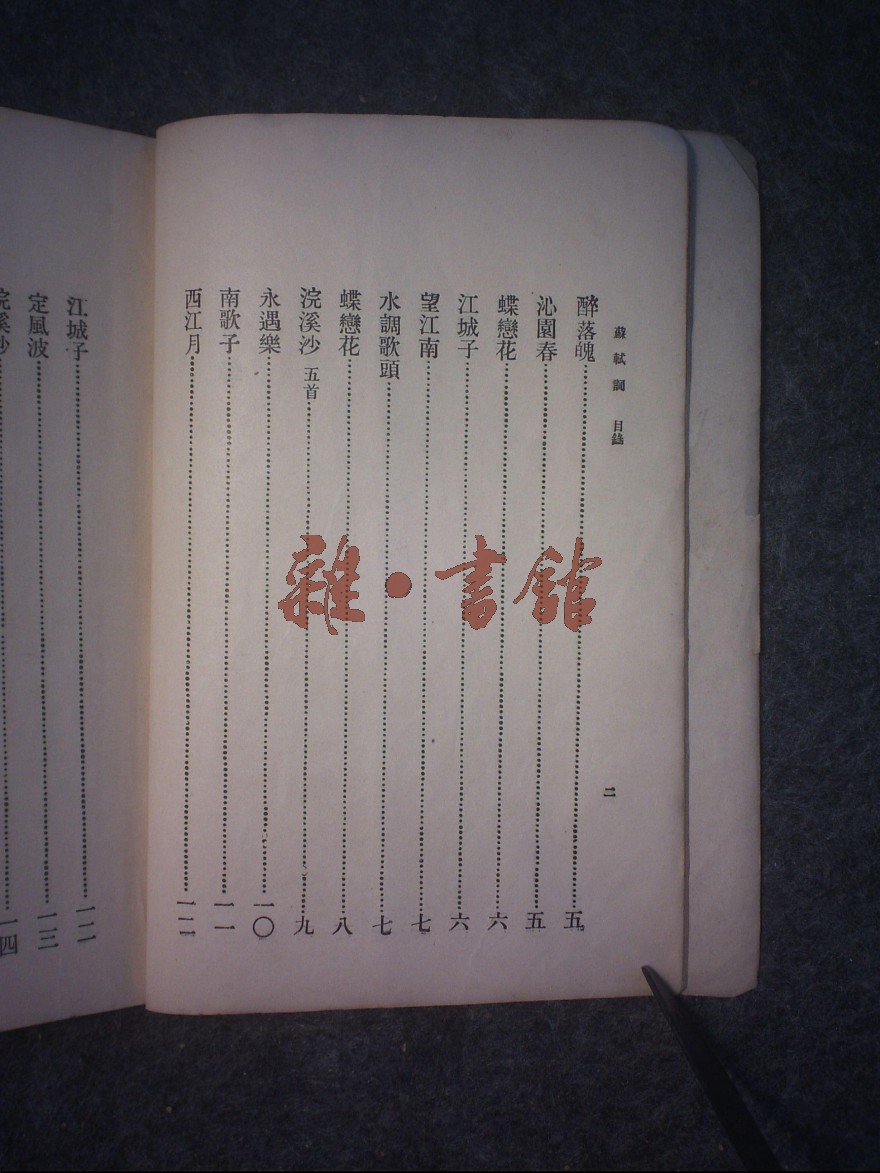 蘇軾詞 目錄
二
醉落魄……五
沁園春……五
蝶戀花……六
江城子……六
望江南……七
水調歌頭……七
蝶戀花……八
浣溪沙 五首……九
永遇樂……一〇
南歌子……一一
西江月……一二
江城子……一二
定風波……一三
浣溪沙……一四
雜·書館